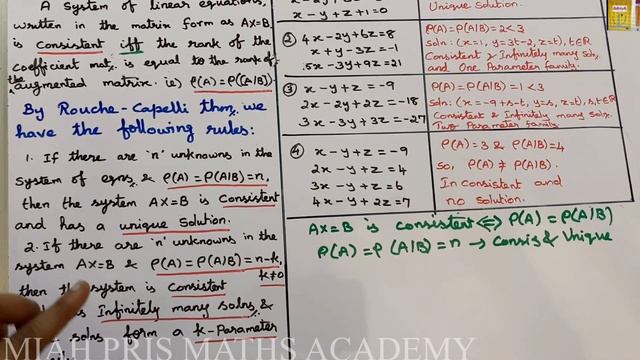 A System of linear equations,
written in the matrix form as AX=B,
is Consistent iff the rank of the
Coefficient mat. is equal to the rank of
the augmented matrix. ie) ρ(A)=ρ((A|B))
By Rouche-Capelli thm, we
have the following rules:
1. If there are 'n' unknowns in the
System of eqns & ρ(A)=ρ(A|B)=n,
then the system AX=B is Consistent
and has a unique Solution.
2. If there are 'n' unknowns in the
system AX=B & ρ(A)=ρ(A|B)=n-k,
k≠0
then the system is Consistent
Infinitely many solns, &
solns form a k-Parameter
x-y+z+1=0
Unique Solution.
② 4x-2y+6z=8
x+y-3z=-1
15x-3y+9z=21
ρ(A)=ρ(A|B)=2<3
Soln: (x=1, y=3t-2, z=t), t∈R
Consistent & Infinitely many Soln,
and One Parameter family.
③ x-y+z=-9
2x-2y+2z=-18
3x-3y+3z=-27
ρ(A)=ρ(A|B)=1<3
Soln: (x=-9+s-t, y=s, z=t), s,t∈R
Consistent & Infinitely many Soln.
Two Parameter family.
④ x-y+z=-9
2x-y+z=4
3x-y+z=6
4x-y+2z=7
ρ(A)=3 & ρ(A|B)=4
So, ρ(A)≠ρ(A|B).
Inconsistent and
no Solution.
AX=B is consistent⟺ρ(A)=ρ(A|B)
ρ(A)=ρ(A|B)=n→Consis & Unique
MIAH PRIS MATHS ACADEMY